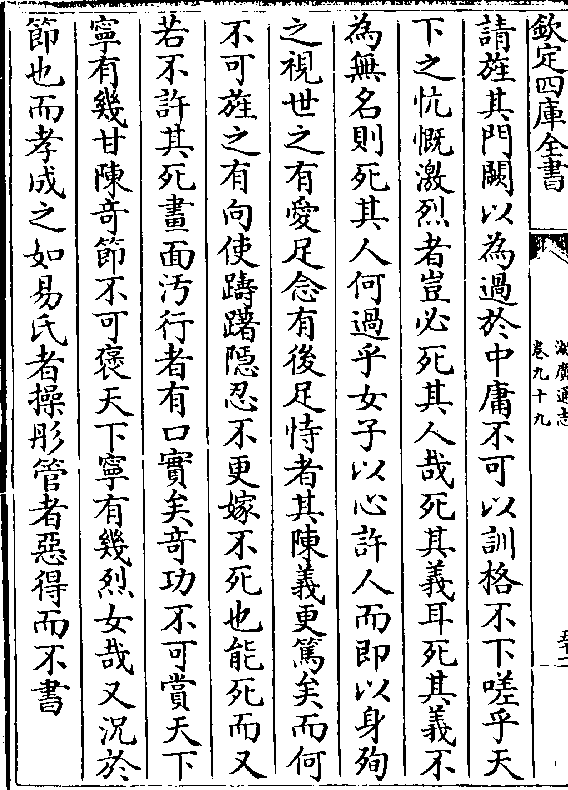 欽定四庫全書
湖廣通志
卷九十九
請旌其門闕以為過於中庸不可以訓格不下嗟乎天
下之忼慨激烈者豈必死其人哉死其義耳死其義不
為無名則死其人何過乎女子以心許人而即以身殉
之視世之有愛足念有後足恃者其陳義更篤矣而何
不可旌之有向使躊躇隱忍不更嫁不死也能死而又
若不許其死晝面汚行者有口實矣竒功不可賞天下
寧有幾甘陳竒節不可褒天下寧有幾烈女哉又況於
節也而孝成之如易氏者操彤管者惡得而不書